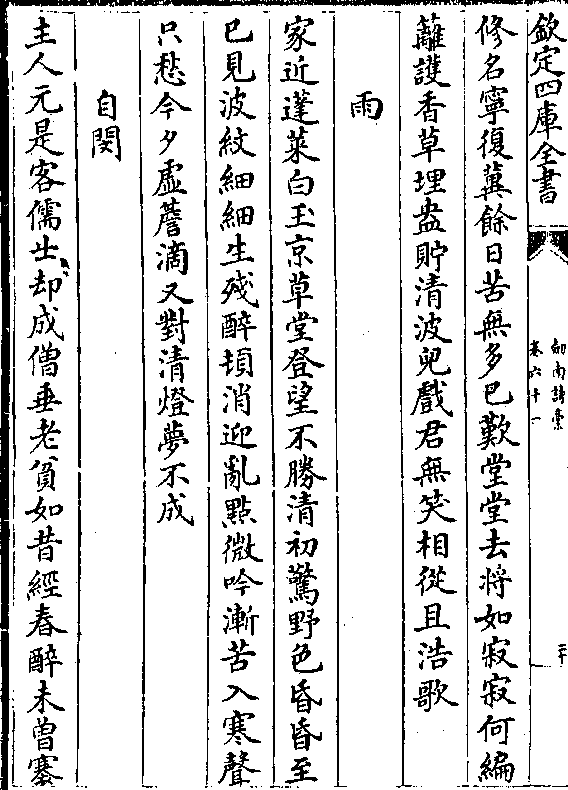 欽定四庫全書
劍南詩稾
卷六十一
二十
修名寧復冀餘日苦無多已歎堂堂去將如寂寂何編
蘺護香草埋盎貯清波兒戲君無笑相從且浩歌
雨
家近蓬萊白玉京草堂登望不勝清初驚野色昏昏至
已見波紋細細生殘醉頓消迎亂點微吟漸苦入寒聲
只愁今夕虛簷滴又對清燈夢不成
自閔
主人元是客儒士却成僧垂老貧如昔經春醉未曽蹇